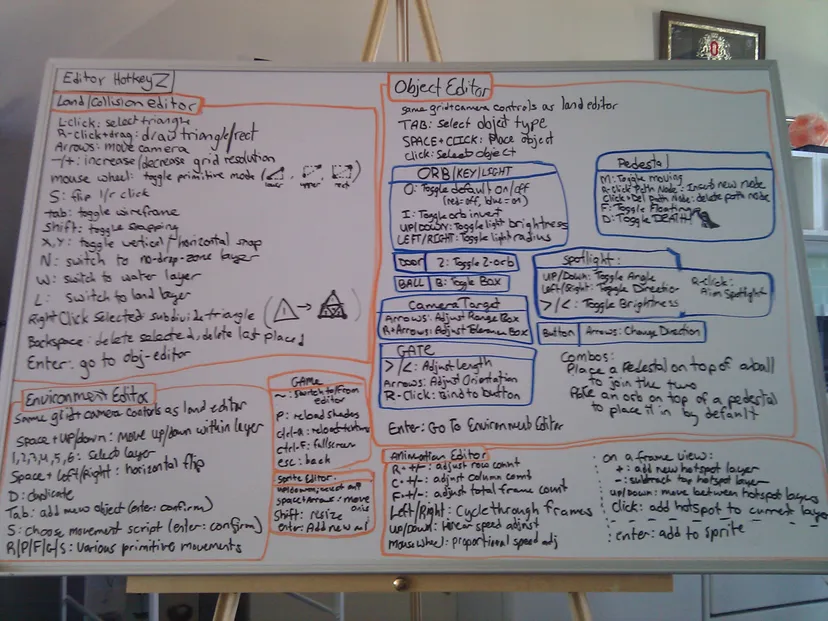 Editor HotkeyZ
Land/Collision editor
L-click: select triangle
R-click+drag: draw triangle/rect
Arrows: move camera
-/+: increase/decrease grid resolution
mouse wheel: toggle primitive mode (lower, upper, rect)
S: flip l/r click
tab: toggle wireframe
Shift: toggle snapping
X,Y: toggle vertical/horizontal snap
N: switch to no-drop-zone layer
W: switch to water layer
L: switch to land layer
Right Click Selected: subdivide triangle
Backspace: delete selected, delete last placed
Enter: go to obj-editor
Environment Editor
Same grid+camera controls as land editor
Space+up/down: move up/down within layer
1,2,3,4,5,6: select layer
Space+Left/Right: horizontal flip
D: duplicate
Tab: add menu object (enter: confirm)
S: Choose movement script (enter: confirm)
R/P/F/G/S: various primitive movements
GAME
~: switch to/from editor
P: reload shaders
ctrl-R: reload textures
ctrl-F: fullscreen
esc: back
Sprite Editor
up/down: select
space+Arrows: move
Shift: resize
enter: Add new
Object Editor
same grid+camera controls as land editor
TAB: select object type
SPACE+CLICK: Place object
Click: Select object
ORB/KEY/LIGHT
O: Toggle default on/off
(red=off, blue=on)
I: Toggle orb invert
UP/DOWN: Toggle light brightness
LEFT/RIGHT: Toggle light radius
Pedestal
M: Toggle moving
R-Click Path Node: Insert new node
Click+Del Path Node: delete path node
F: Toggle Floating
D: Toggle DEATH!
DOOR Z: Toggle Z-orb
BALL B: Toggle Box
Spotlight:
UP/Down: Toggle Angle
Left/Right: Toggle Direction
>/<: Toggle Brightness
R-click:
Aim Spotlight
Camera Target
Arrows: Adjust Range Box
R+Arrows: Adjust Tolerance Box
Button Arrows: Change Direction
GATE
>/<: Adjust Length
Arrows: Adjust Orientation
R-Click: Bind to button
Combos:
Place a Pedestal on top of a ball
to join the two
Place an orb on top of a pedestal
to place it in by default
Enter: Go To Environment Editor
Animation Editor
R+ +/-: adjust row count
C+ +/-: adjust column count
F+ +/-: adjust total frame count
Left/Right: Cycle through frames
up/down: linear speed adjust
Mouse Wheel: proportional speed adj
on a frame view:
+: add new hotspot layer
-: subtract top hotspot layer
up/down: move between hotspot layers
click: add hotspot to current layer
enter: add to sprite